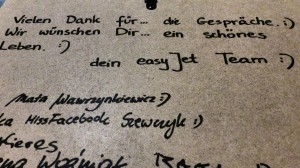 Vielen Dank für... die Gespräche. :)
Wir wünschen Dir... ein schönes
Leben. :)
dein easyJet Team :)
Mata Wawrzynkiewicz :)
ka MissFacebook Szewczyk :)
Kieres